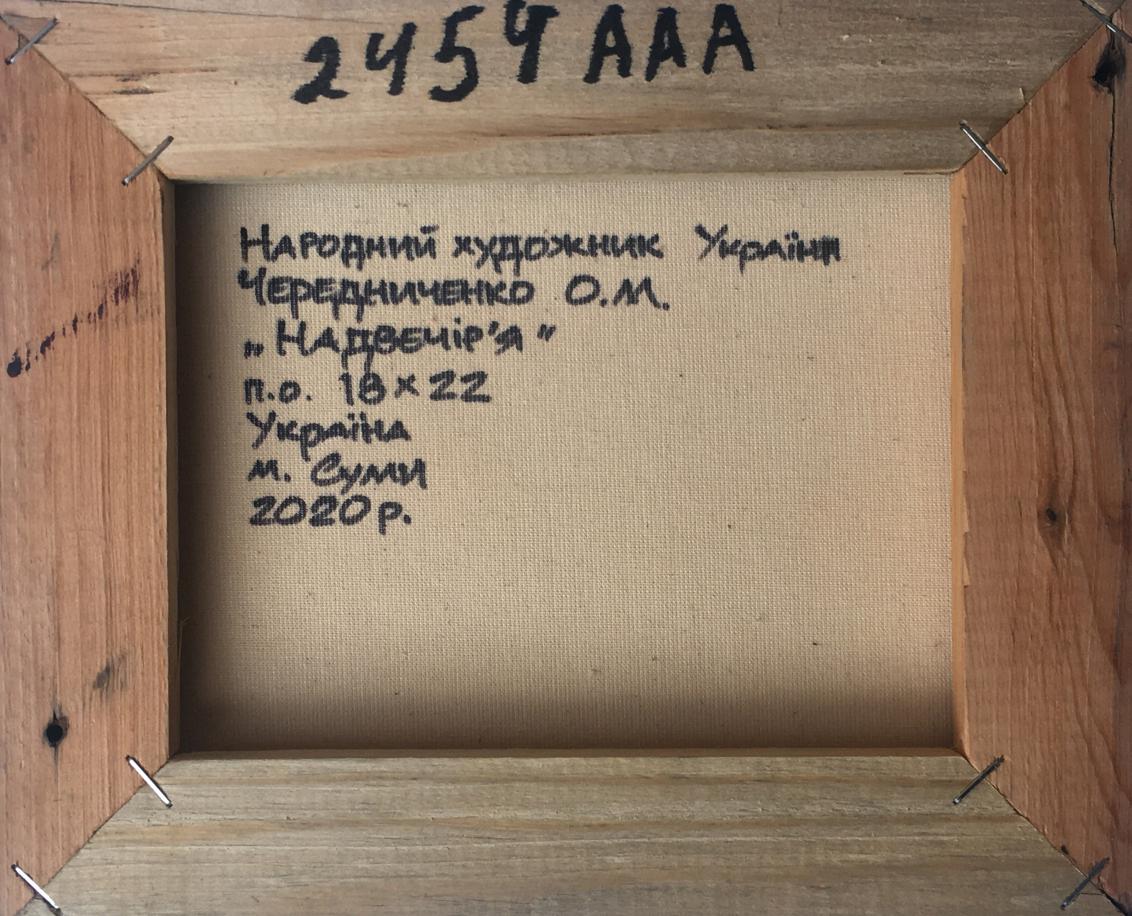 2454 ААА
Народний художник України
Чередниченко О.М.
„Надвечір'я"
п.о. 18×22
Україна
м. Суми
2020 р.